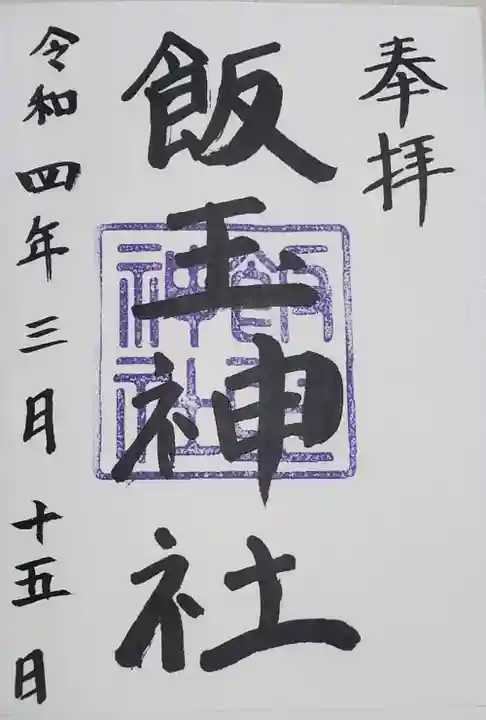 奉拝
飯玉神社
飯玉神社
令和四年三月十五日